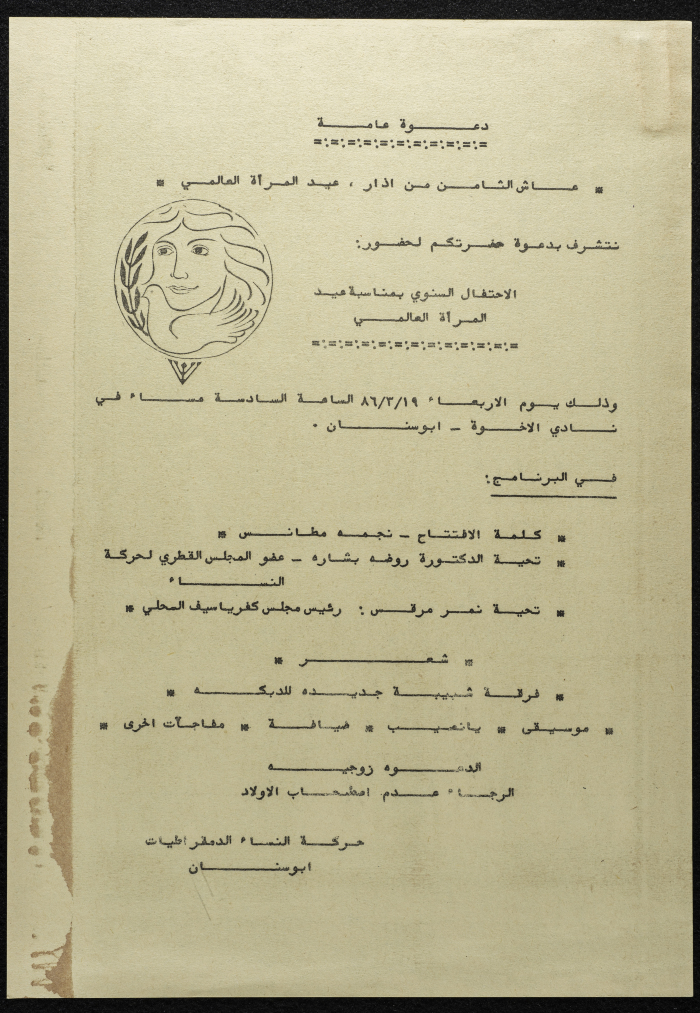 دعوة عامة
* عاش الثامن من اذار ، عيد المرأة العالمي *
نتشرف بدعوة حضرتكم لحضور:
الاحتفال السنوي بمناسبة عيد
المرأة العالمي
وذلك يوم الاربعاء ٨٦/٣/١٩ الساعة السادسة مساء في
نادي الاخوة - ابوسنان .
في البرنامج:
* كلمة الافتتاح - نجمه مطانس *
* تحية الدكتورة روضه بشاره - عضو المجلس القطري لحركة
النساء
* تحية نمر مرقس : رئيس مجلس كفرياسيف المحلي *
* شعر *
* فرقة شبيبة جديده للدبكه *
* موسيقى * يانصيب * ضيافة * مفاجآت اخرى *
الدعوه زوجيه
الرجاء عدم اصطحاب الاولاد
حركة النساء الدمقراطيات
ابوسنان